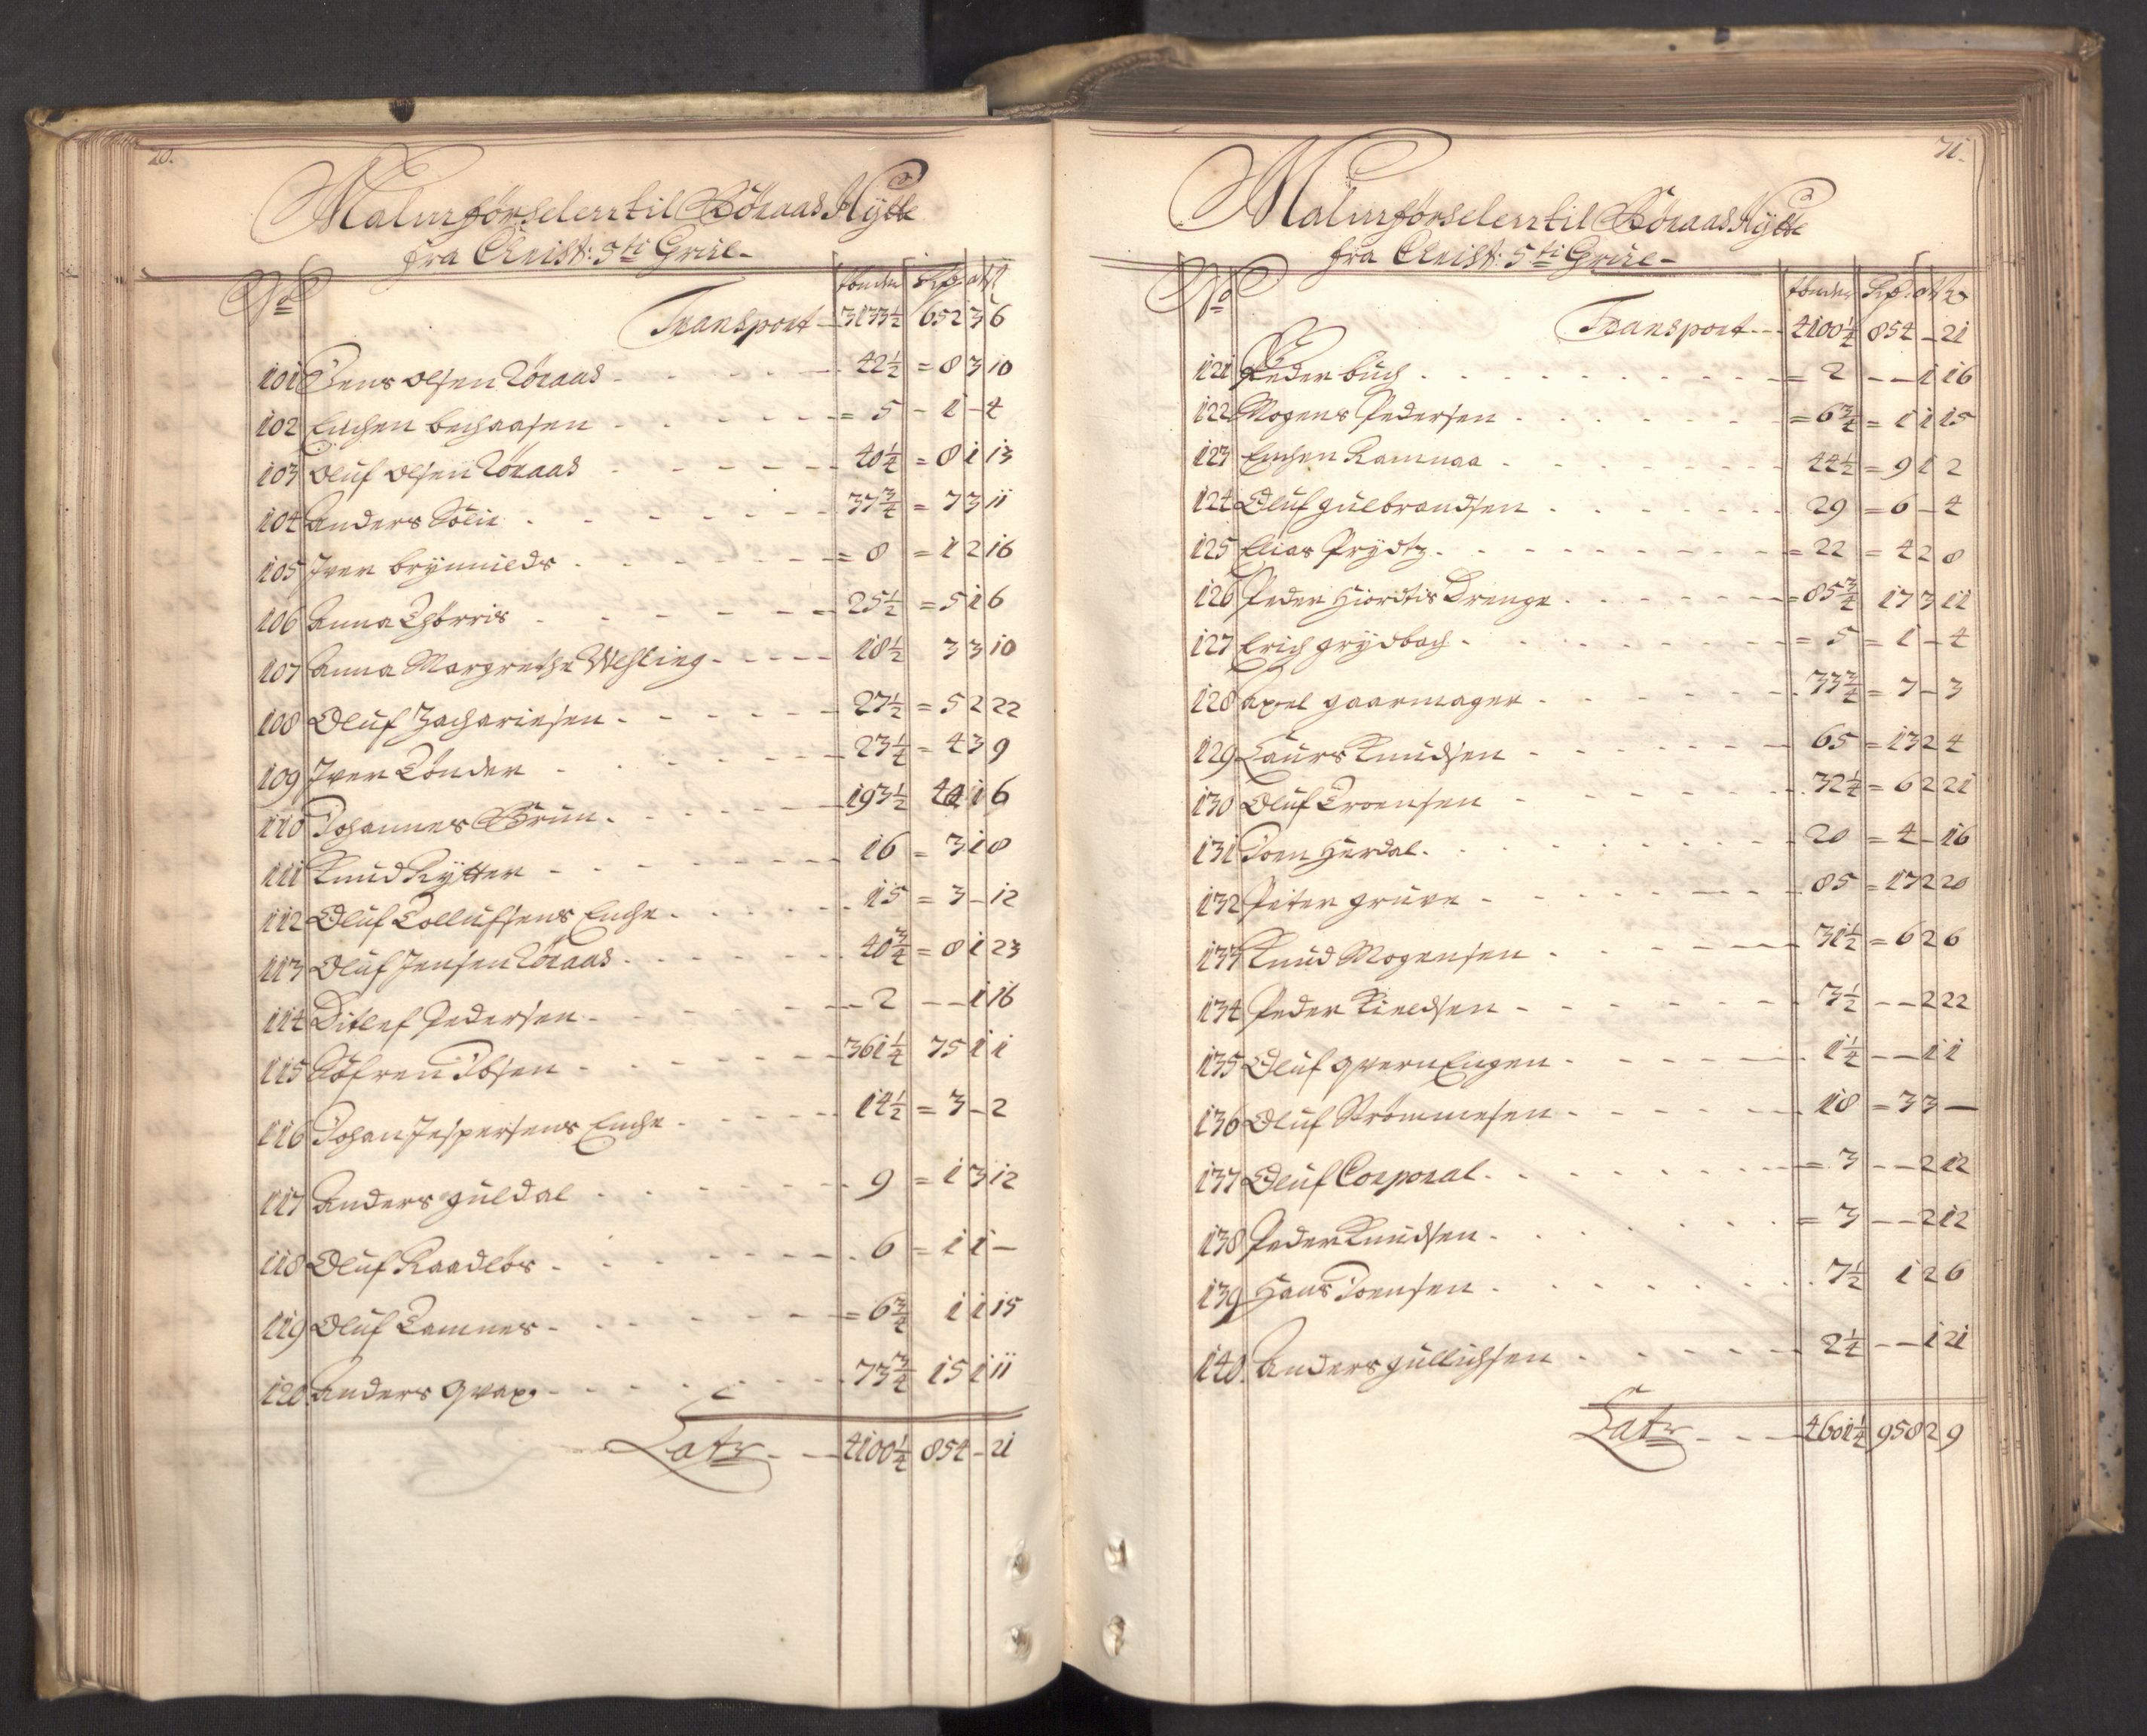 70.
Malmförselen til Röraas Hytte
fra Christ: 5ti Grue
No tönder Rdr. ort ß
Transport 3133½ 652 3 6
101 Jens Olsen Röraas 42½ = 8 3 10
102 Enchen bechaasen = 5 - 1 - 4
103 Oluf Olsen Röraas 40¼ = 8 1 13
104 Anders Sölie 37¾ = 7 3 11
105 Iver brynnilds = 8 = 1 2 16
106 Anna Thörris 25½ = 5 1 6
107 Anna Margrethe Wesling 18½ 3 3 10
108 Oluf Zachariesen 27½ = 5 2 22
109 Iver Tönder 23¼ = 4 3 9
110 Johannes Bruun 193½ 40 1 6
111 Knud Rytter 16 = 3 1 8
112 Oluf Tollufsens Enche 15 = 3 - 12
113 Oluf Jensen Röraas 40¾ = 8 1 23
114 Ditlef Pedersen 2 - - 1 16
115 Söfren Ibsen 361¼ 75 1 1
116 Johan Jespersens Enche 14½ = 3 - 2
117 Anders guldal 9 = 1 3 12
118 Oluf Raadlös 6 = 1 1 -
119 Oluf Tamnes = 6¾ 1 1 15
120 Anders qvap 73¾ 15 1 11
Latr 4100¼ 854 - 21
71.
Malmförselen til Röraas Hytte
fra Christ: 5ti Grue
No tönder Rdr. ort ß
Transport 4100¼ 854 - 21
121 Peder buch = 2 - - 1 16
122 Mogens Pedersen = 6¾ = 1 1 15
123 Enchen Kamnaa 44½ = 9 1 2
124 Oluf gulbrandsen 29 = 6 - 4
125 Elias Prydtz = 22 = 4 2 8
126 Peder Hiordtis Drenge = 85¾ 17 3 11
127 Erich grydbach = 5 = 1 - 4
128 Axel gaarmager 33¾ = 7 - 3
129 Laurs Knudsen 65 = 13 2 4
130 Oluf Troensen 32¼ = 6 2 21
131 Joen Hurdal 20 = 4 - 16
132 Peter gruve 85 = 17 2 20
133 Knud Mogensen 31½ = 6 2 6
134 Peder Kieldsen 3½ - - 2 22
135 Oluf qvernEngen 1¼ - - 1 1
136 Oluf Strömmesen 18 = 3 3 -
137 Oluf Corporal = 3 - - 2 12
138 Peder Knudsen = 3 - - 2 12
139 Hans Joensen 7½ 1 2 6
140 Anders gullichsen 2¼ - - 1 21
Latr 4601¼ 958 2 9